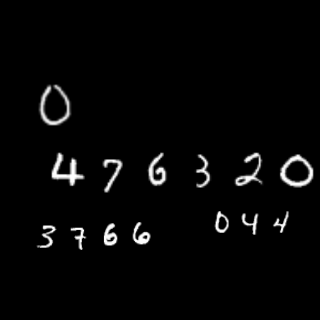 0
476320
3766 044